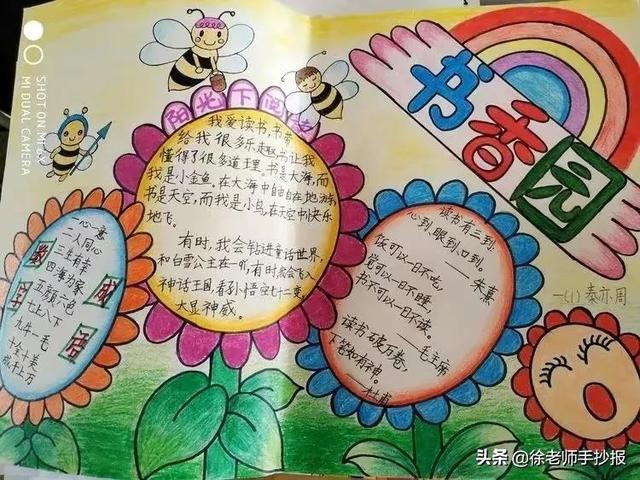 SHOT ON MI 6X
MI DUAL CAMERA
书香园
阳光下阅读
一(1) 秦亦周
数字成语
一心一意
二人同心
三生有幸
四海为家
五颜六色
七上八下
九牛一毛
十全十美
成千上万
我爱读书,书带
给我很多乐趣,书让我
懂得了很多道理。书是大海,而
我是小金鱼,在大海中自由自在地游;
书是天空,而我是小鸟,在天空中快乐
地飞。
有时,我会钻进童话世界,
和白雪公主在一听,有时就会飞入
神话王国,看孙悟空七十二变,
大显神威。
读书有三到,
心到、眼到、口到。
——朱熹
饭可以一日不吃,
觉可以一日不睡,
书不可以一日不读。
——毛主席
读书破万卷,
下笔如有神。
——杜甫
头条 @徐老师手抄报